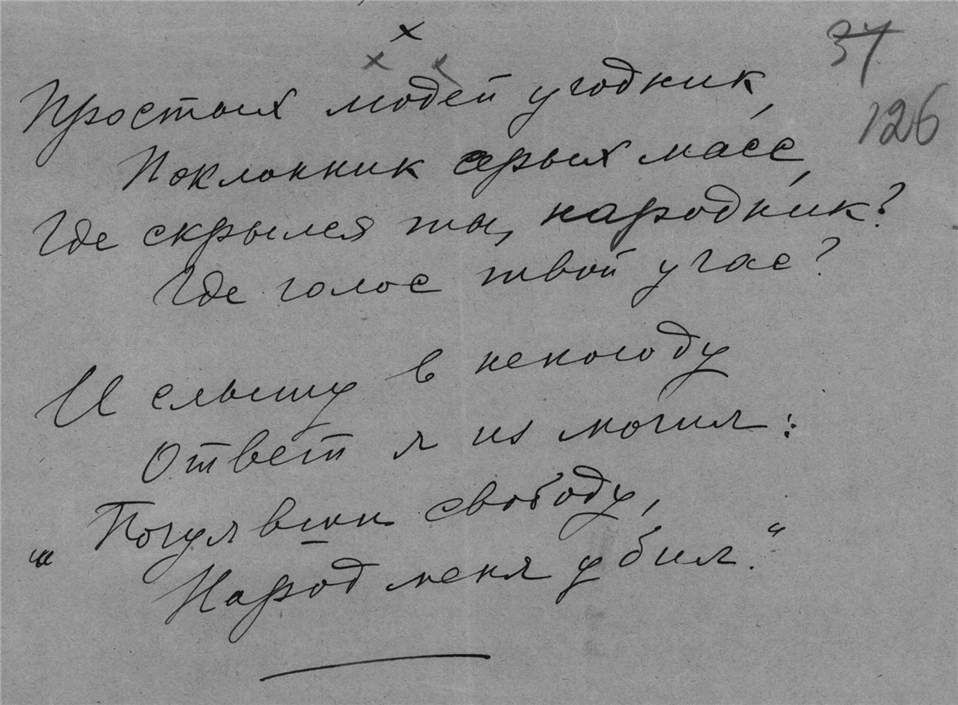 х
х х
37
126
Простых людей угодник,
Поклонник серых масс,
Где скрылся ты, народник?
Где голос твой угас?
И слышу в непогоду
Ответ я из могил:
„Почуявши свободу,
Народ меня убил.“